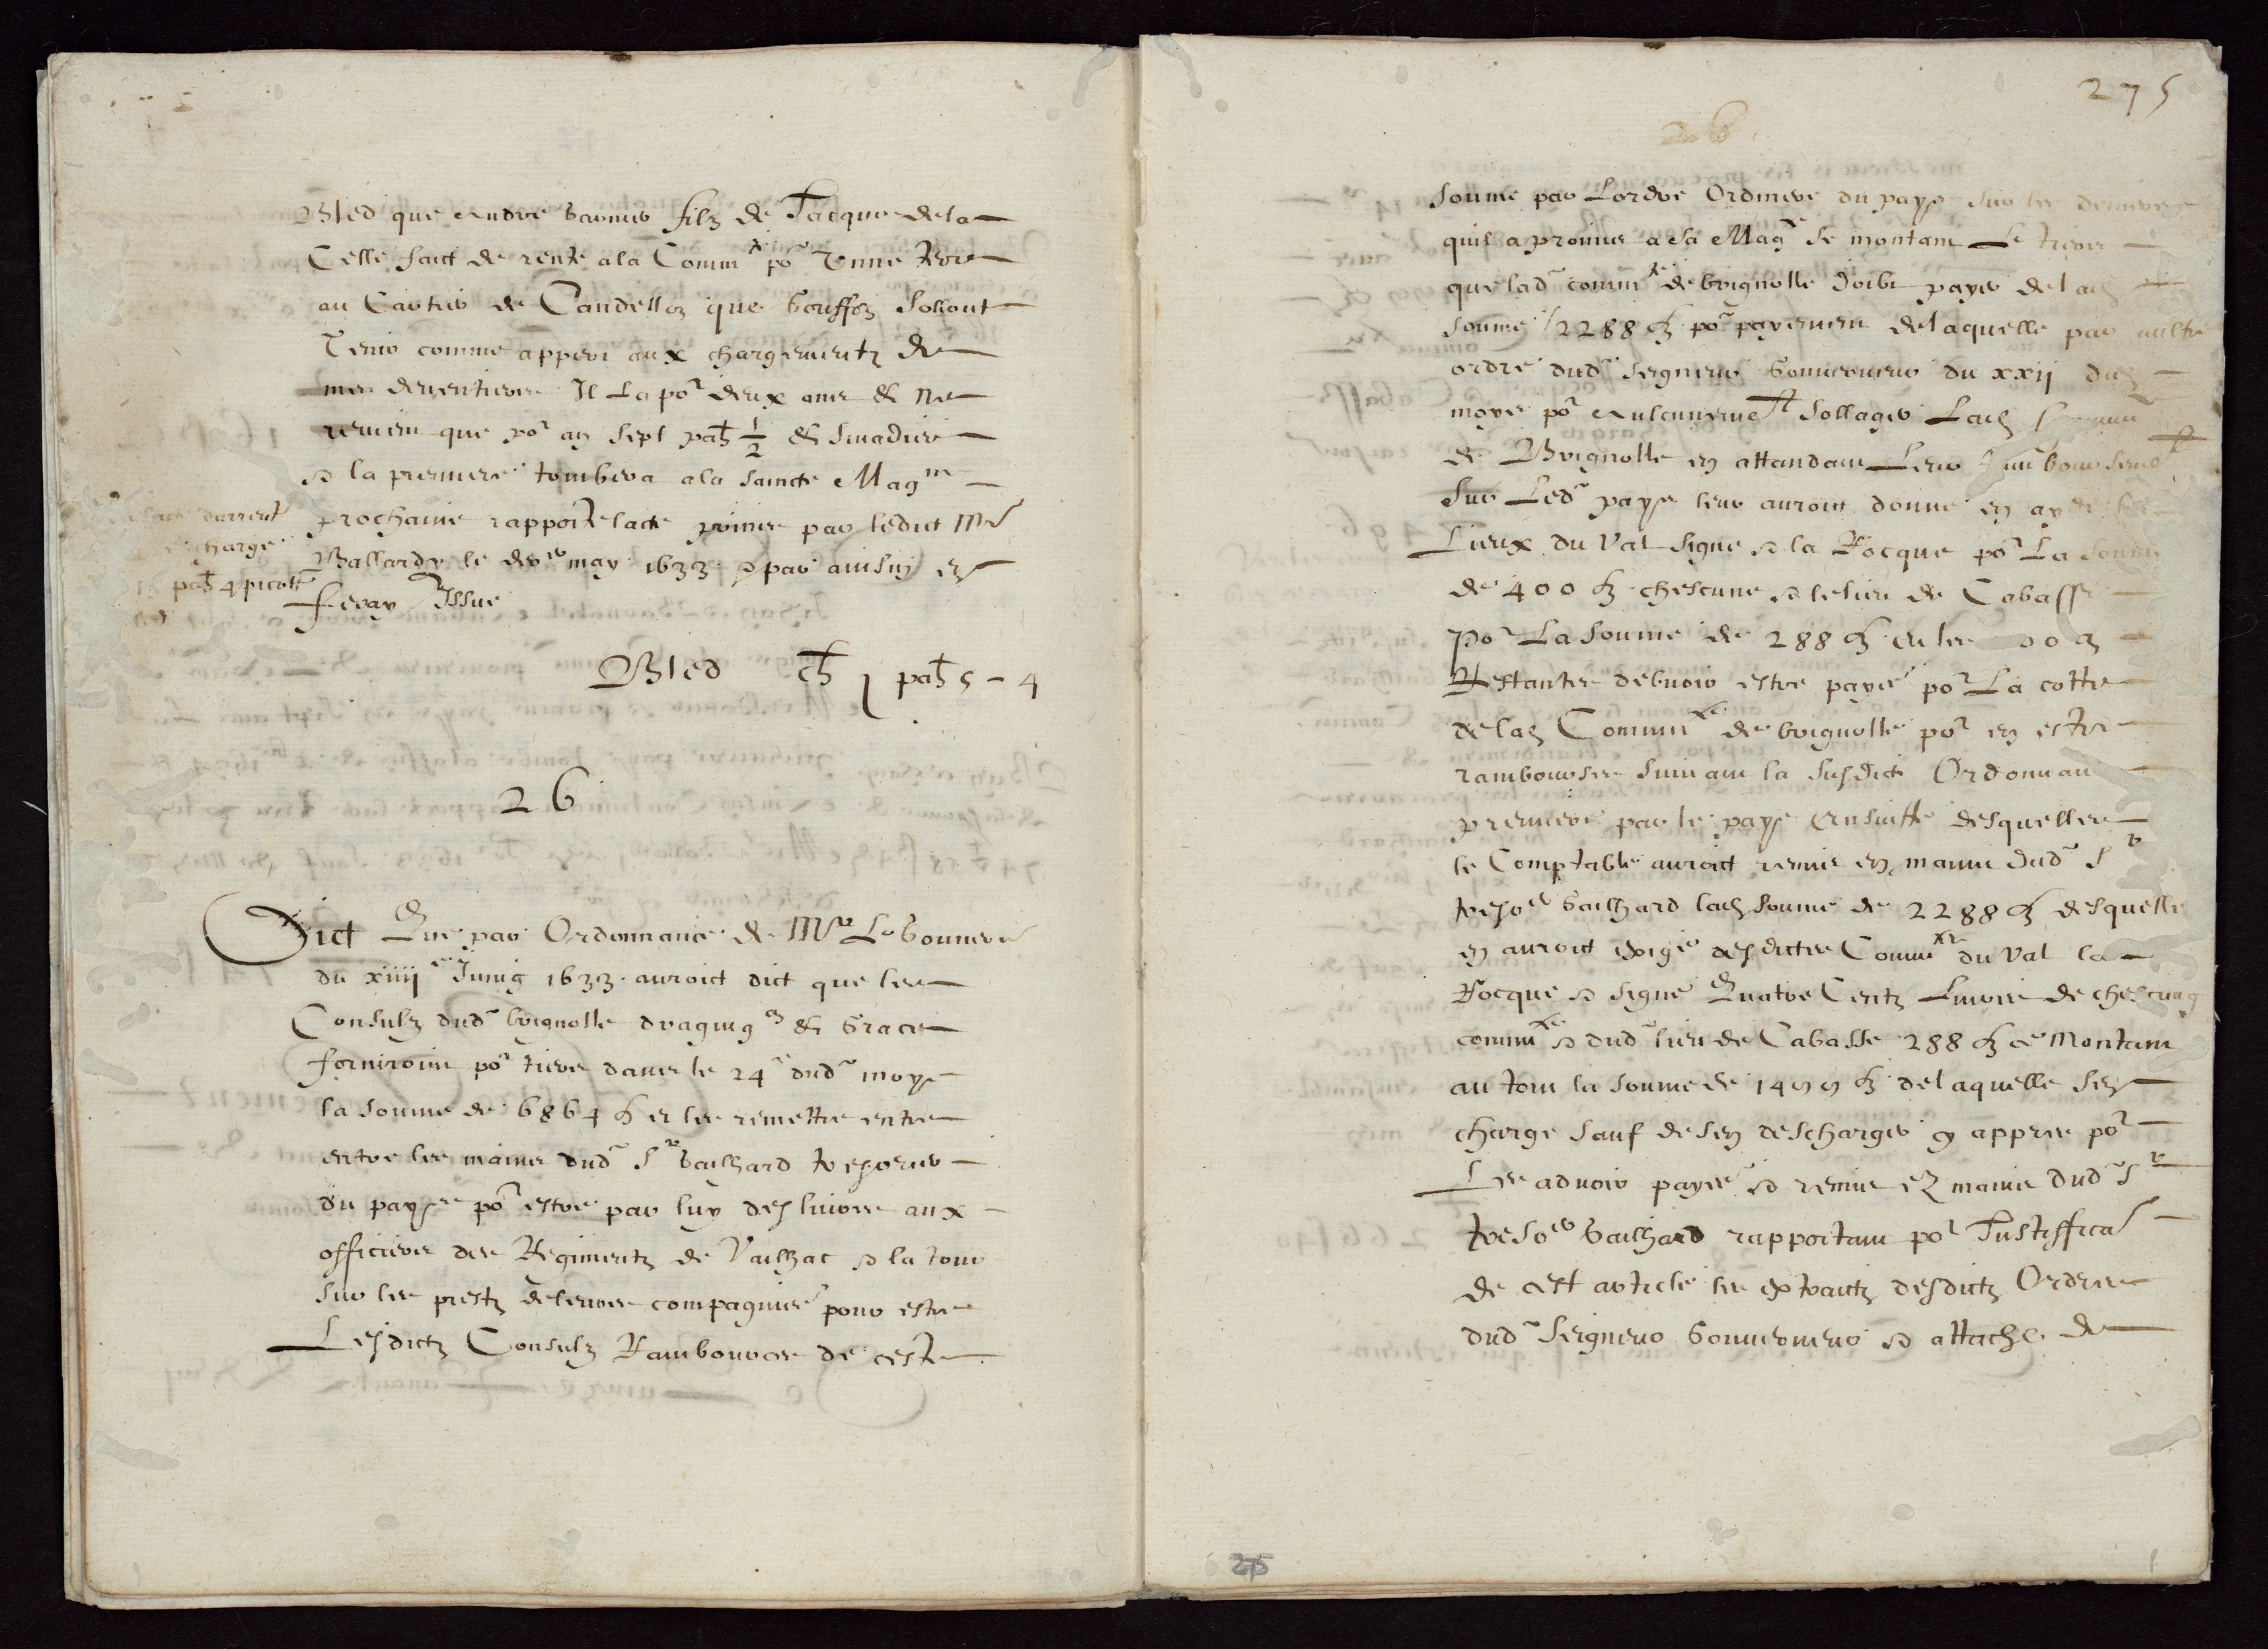 Bled que Andre garnier filz de Jacques de la
Celle faict de rente a la Commte por Unne terre
au Cartier de Candellon que gouffon solloict
Tenir comme appert aux chargements de
mes devantiers Il La por deux ans & ne
revient que por an sept pah 1/2 & smadiere
& la premiere tombera a la saincte Magne
prochaine rapporte lacte prinse par ledict Me
Ballardy le may 1633 & par ainsin en
feray Issue
lacte darrent
charge
pah 4 picott
Bled ch 1 pah 5 - 4
26
Dict Que par Ordonnance de Mr Le gouverr
du xiiii Juing 1633 auroict dict que les
Consulz dud brignolle draguign & Grace
forniroint por tiers dans le 24e dud moys
la somme de 6864 lt et les remettre entre
entre les mains dud Sr gailhard tresorier
du pays por estre par luy deslivres aux
officiers des Regimentz de Vailhac & la tour
sur les prestz de leurs compagnies pour estre
Lesdictz Consulz Rambourcés de ceste
275
somme par Lordre Ordinere du pays sur les deniers
quil a promis a sa Magte se montant Le tiers
que lad commte de brignolle doibt payer de lad
somme 2288 lt por payement de laquelle par aultre
ordre dud seigneur gouverneur du xxii dud
moys por sollager Lad
de Brignolle en attandant Leur rambourcemt
sur Led pays leur auroit donné en ayde les
Lieux du Val signe & la Rocque por La somme
de 400 lt chescune & le lieu de Cabasse
por La somme de 288 lt et les
Restantes debvoir estre payé por La cotte
de lad Commte de brignolle por en estre
rambourses suivant la susdicte Ordonnan
premiere par le pays Ensuitte desquelles
le Comptable auroict remis en mains dud Sr
tresor gailhard lad somme de 2288 lt desquelles
en auroict exigé desdictes Commtes du Val la
Rocque & signe Quatre Centz Livres de chescung
commte & dud lieu de Cabasse 288 lt se Montant
au tout la somme de 14 lt de laquelle sen
charge sauf de sen descharger cy appres por
Les advoir payés & remis ez mains dud Sr
tresor gailhard rapportant por Justiffica
de cest article les extraictz desdictz Ordres
dud Seigneur gouverneur & attache de
275